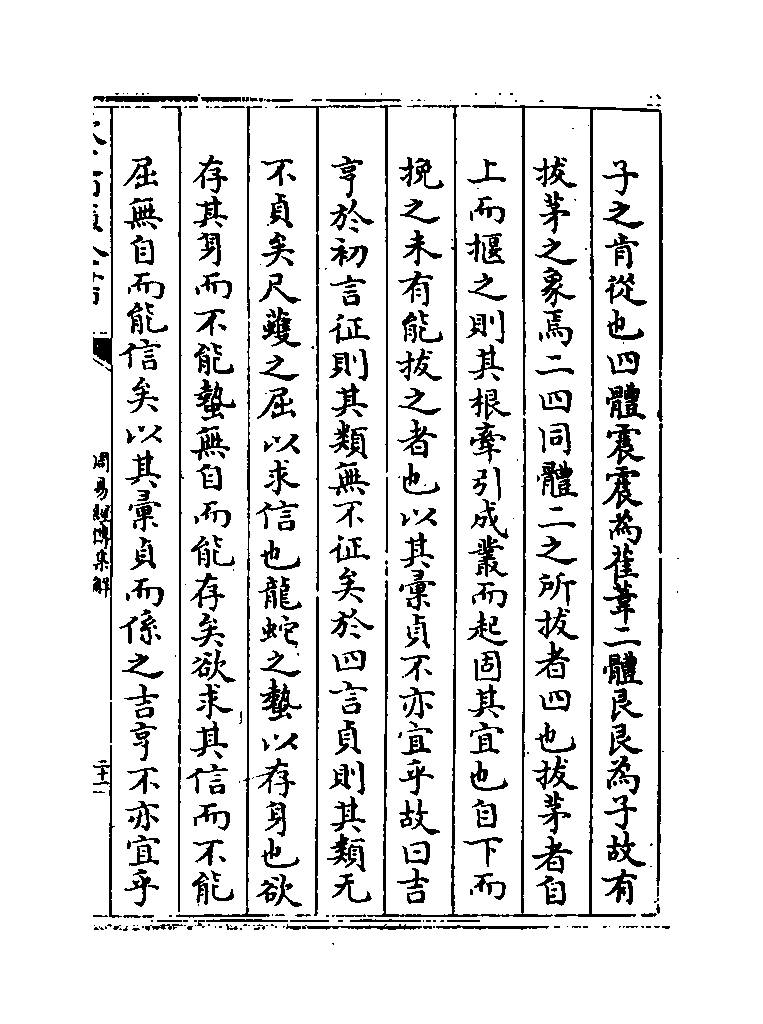 子之肯從也四體震震為萑葦二體艮艮為子故有
拔茅之象焉二四同體二之所拔者四也拔茅者自
上而揠之則其根牽引成叢而起固其宜也自下而
挽之未有能拔之者也以其彚貞不亦宜乎故曰吉
亨於初言征則其類無不征矣於四言貞則其類无
不貞矣尺蠖之屈以求信也龍蛇之蟄以存身也欲
存其身而不能蟄無自而能存矣欲求其信而不能
屈無自而能信矣以其彚貞而係之吉亨不亦宜乎
周易經傳集解
二十二